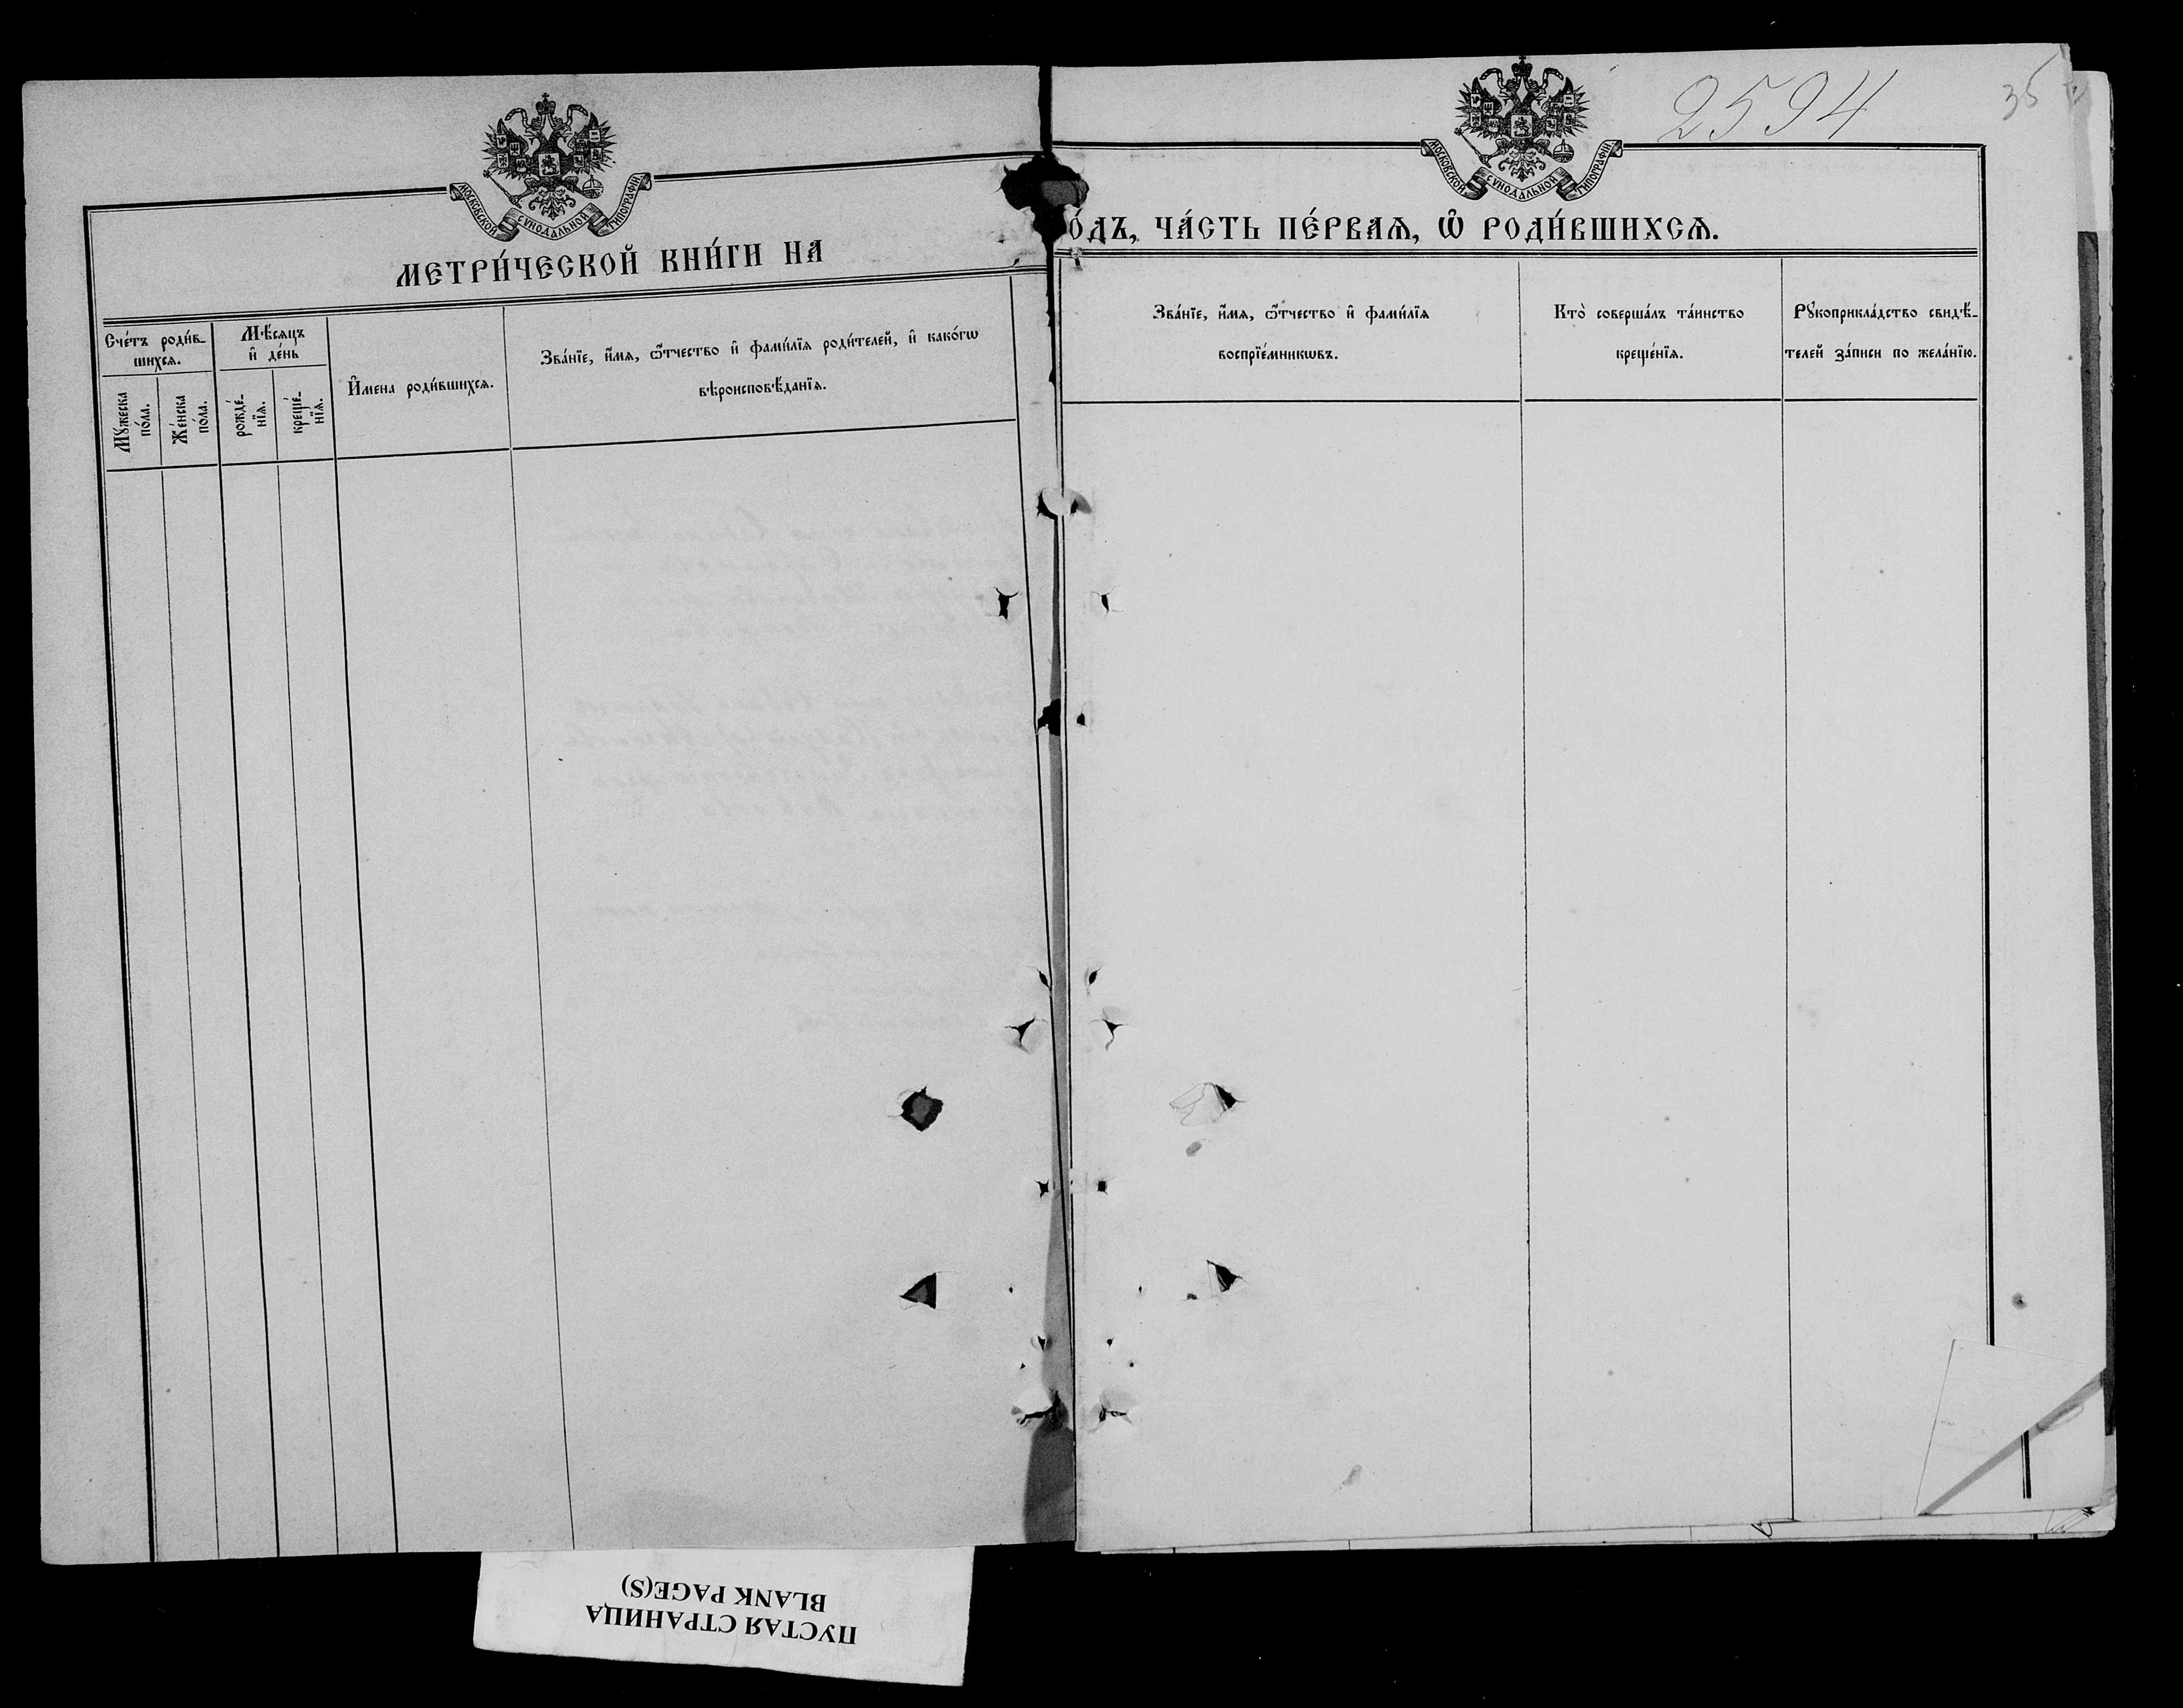 МОСКОВСКОЙ СѴНОДАЛЬНОЙ ТИПОГРАФІИ
МЕТРИ́ЧЕСКОЙ КНИ́ГИ НА
Сче́тъ роди́в-
шихсѧ.
Мꙋ́жеска
по́ла.
Же́нска
по́ла.
Мѣ́сѧцъ
и҆ де́нь
рожде́-
нїѧ.
креще́-
нїѧ.
И҆́мена роди́вшихсѧ.
Зва́нїе, и҆́мѧ, ѻ҆́тчество и҆ фами́лїѧ роди́телей, и҆ како́гѡ
вѣроисповѣ́данїѧ.
2594
35
МОСКОВСКОЙ СѴНОДАЛЬНОЙ ТИПОГРАФІИ
О́ДЪ, ЧА́СТЬ ПЕ́РВАѦ, Ѽ РОДИ́ВШИХСѦ.
Зва́нїе, и҆́мѧ, ѻ҆́тчество и҆ фами́лїѧ
воспрїе́мникѡвъ.
Кто̀ соверша́лъ та́инство
креще́нїѧ.
Рꙋкоприкла́дство свидѣ́-
телей за́писи по жела́нїю.
ПУСТАЯ СТРАНИЦА
BLANK PAGE(S)